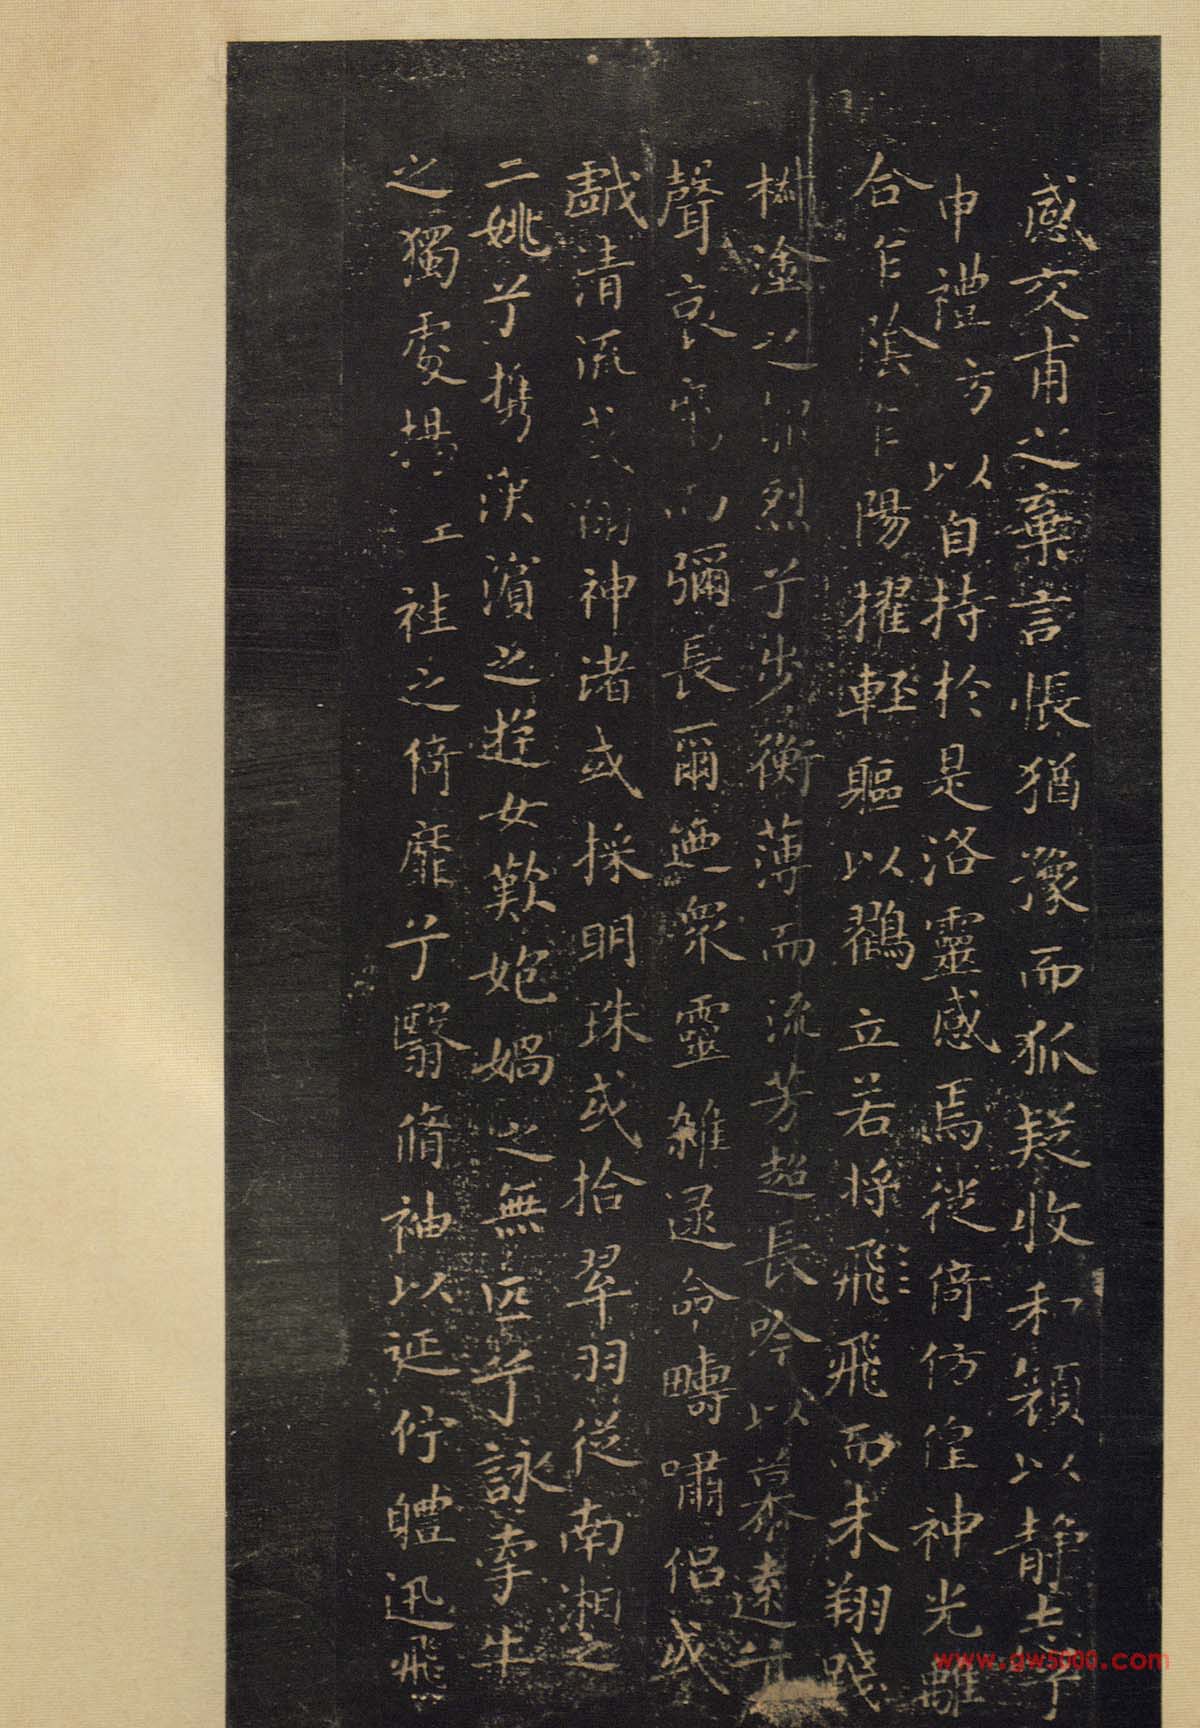 感交甫之棄言悵猶豫而狐疑收和顔以静志兮
申禮方以自持於是洛靈感焉徙倚仿偟神光離
合乍陰乍陽擢輕軀以鶴立若將飛飛而未翔踐
椒塗之郁烈兮步衡薄而流芳超長吟以慕遠兮
聲哀厲而彌長爾迺衆靈雜遝命疇嘯侣或
戲清流或翔神渚或採明珠或拾翠羽從南湘之
二姚兮携漢濱之遊女歎姽媧之無匹兮詠牽牛
之獨處揚袿之倚靡兮翳脩袖以延佇軆迅飛
www.gw5000.com